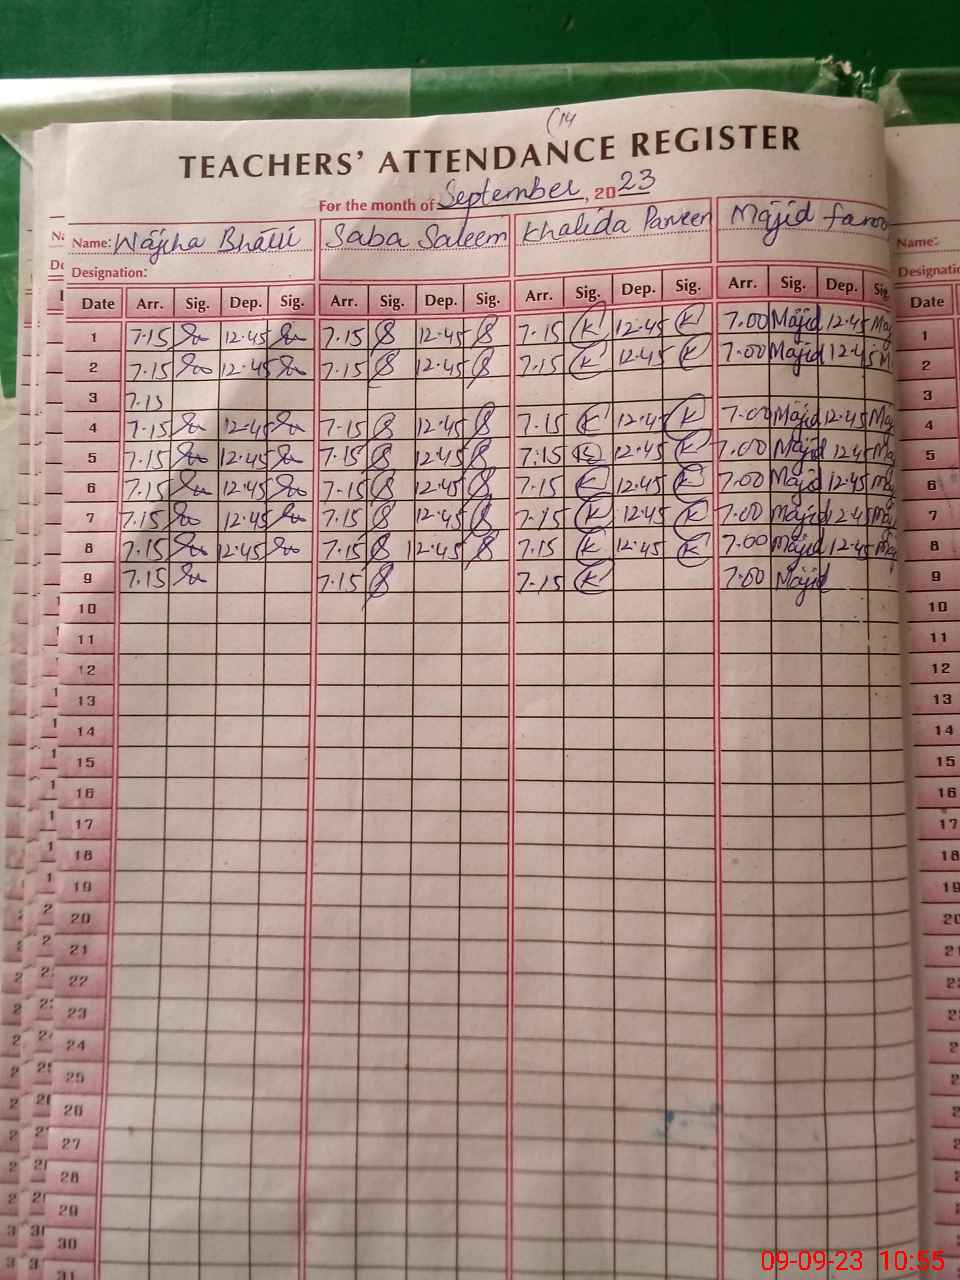 (14
TEACHERS' ATTENDANCE REGISTER
For the month of September, 2023
Name: Wajiha Bhatti Saba Saleem Khalida Parveen Majid faroo Name:
Designation: Designatio
Date Arr. Sig. Dep. Sig. Arr. Sig. Dep. Sig. Arr. Sig. Dep. Sig. Arr. Sig. Dep. Sig. Date
1 7.15 12.45 7.15 12.45 7.15 K 12.45 K 7.00 Majid 12.45 Maj 1
2 7.15 12.45 7.15 12.45 7.15 K 12.45 K 7.00 Majid 12.45 M 2
3 7.15 3
4 7.15 12.45 7.15 12.45 7.15 K 12.45 K 7.00 Majid 12.45 Maj 4
5 7.15 12.45 7.15 12.45 7.15 K 12.45 K 7.00 Majid 12.45 Ma 5
6 7.15 12.45 7.15 12.45 7.15 K 12.45 K 7.00 Majid 12.45 Maj 6
7 7.15 12.45 7.15 12.45 7.15 K 12.45 K 7.00 Majid 12.45 Maj 7
8 7.15 12.45 7.15 12.45 7.15 K 12.45 K 7.00 Majid 12.45 Maj 8
9 7.15 7.15 7.15 K 7.00 Majid 9
10 10
11 11
12 12
13 13
14 14
15 15
16 16
17 17
18 18
19 19
20 20
21 21
22 2
23 2
24 2
25 2
26 2
27 2
28 2
29 2
30 3
31
09-09-23 10:55